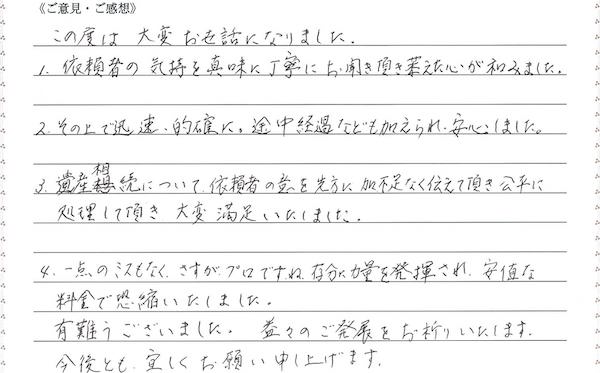 《ご意見・ご感想》
この度は 大変 お世話になりました。
1. 依頼者の 気持を真味に丁寧に お聞き頂き萎えた心が和みました。
2. その上で迅速、的確に。途中経過なども加えられ、安心しました。
3. 遺産相続について、依頼者の意を先方に加不足なく伝えて頂き公平に
処理して頂き 大変 満足いたしました。
4. 一点のミスもなく、さすがプロですね。存分に力量を発揮され、安値な
料金で恐縮いたしました。
有難うございました。 益々のご発展をお祈りいたします。
今後とも、宜しくお願い申し上げます。